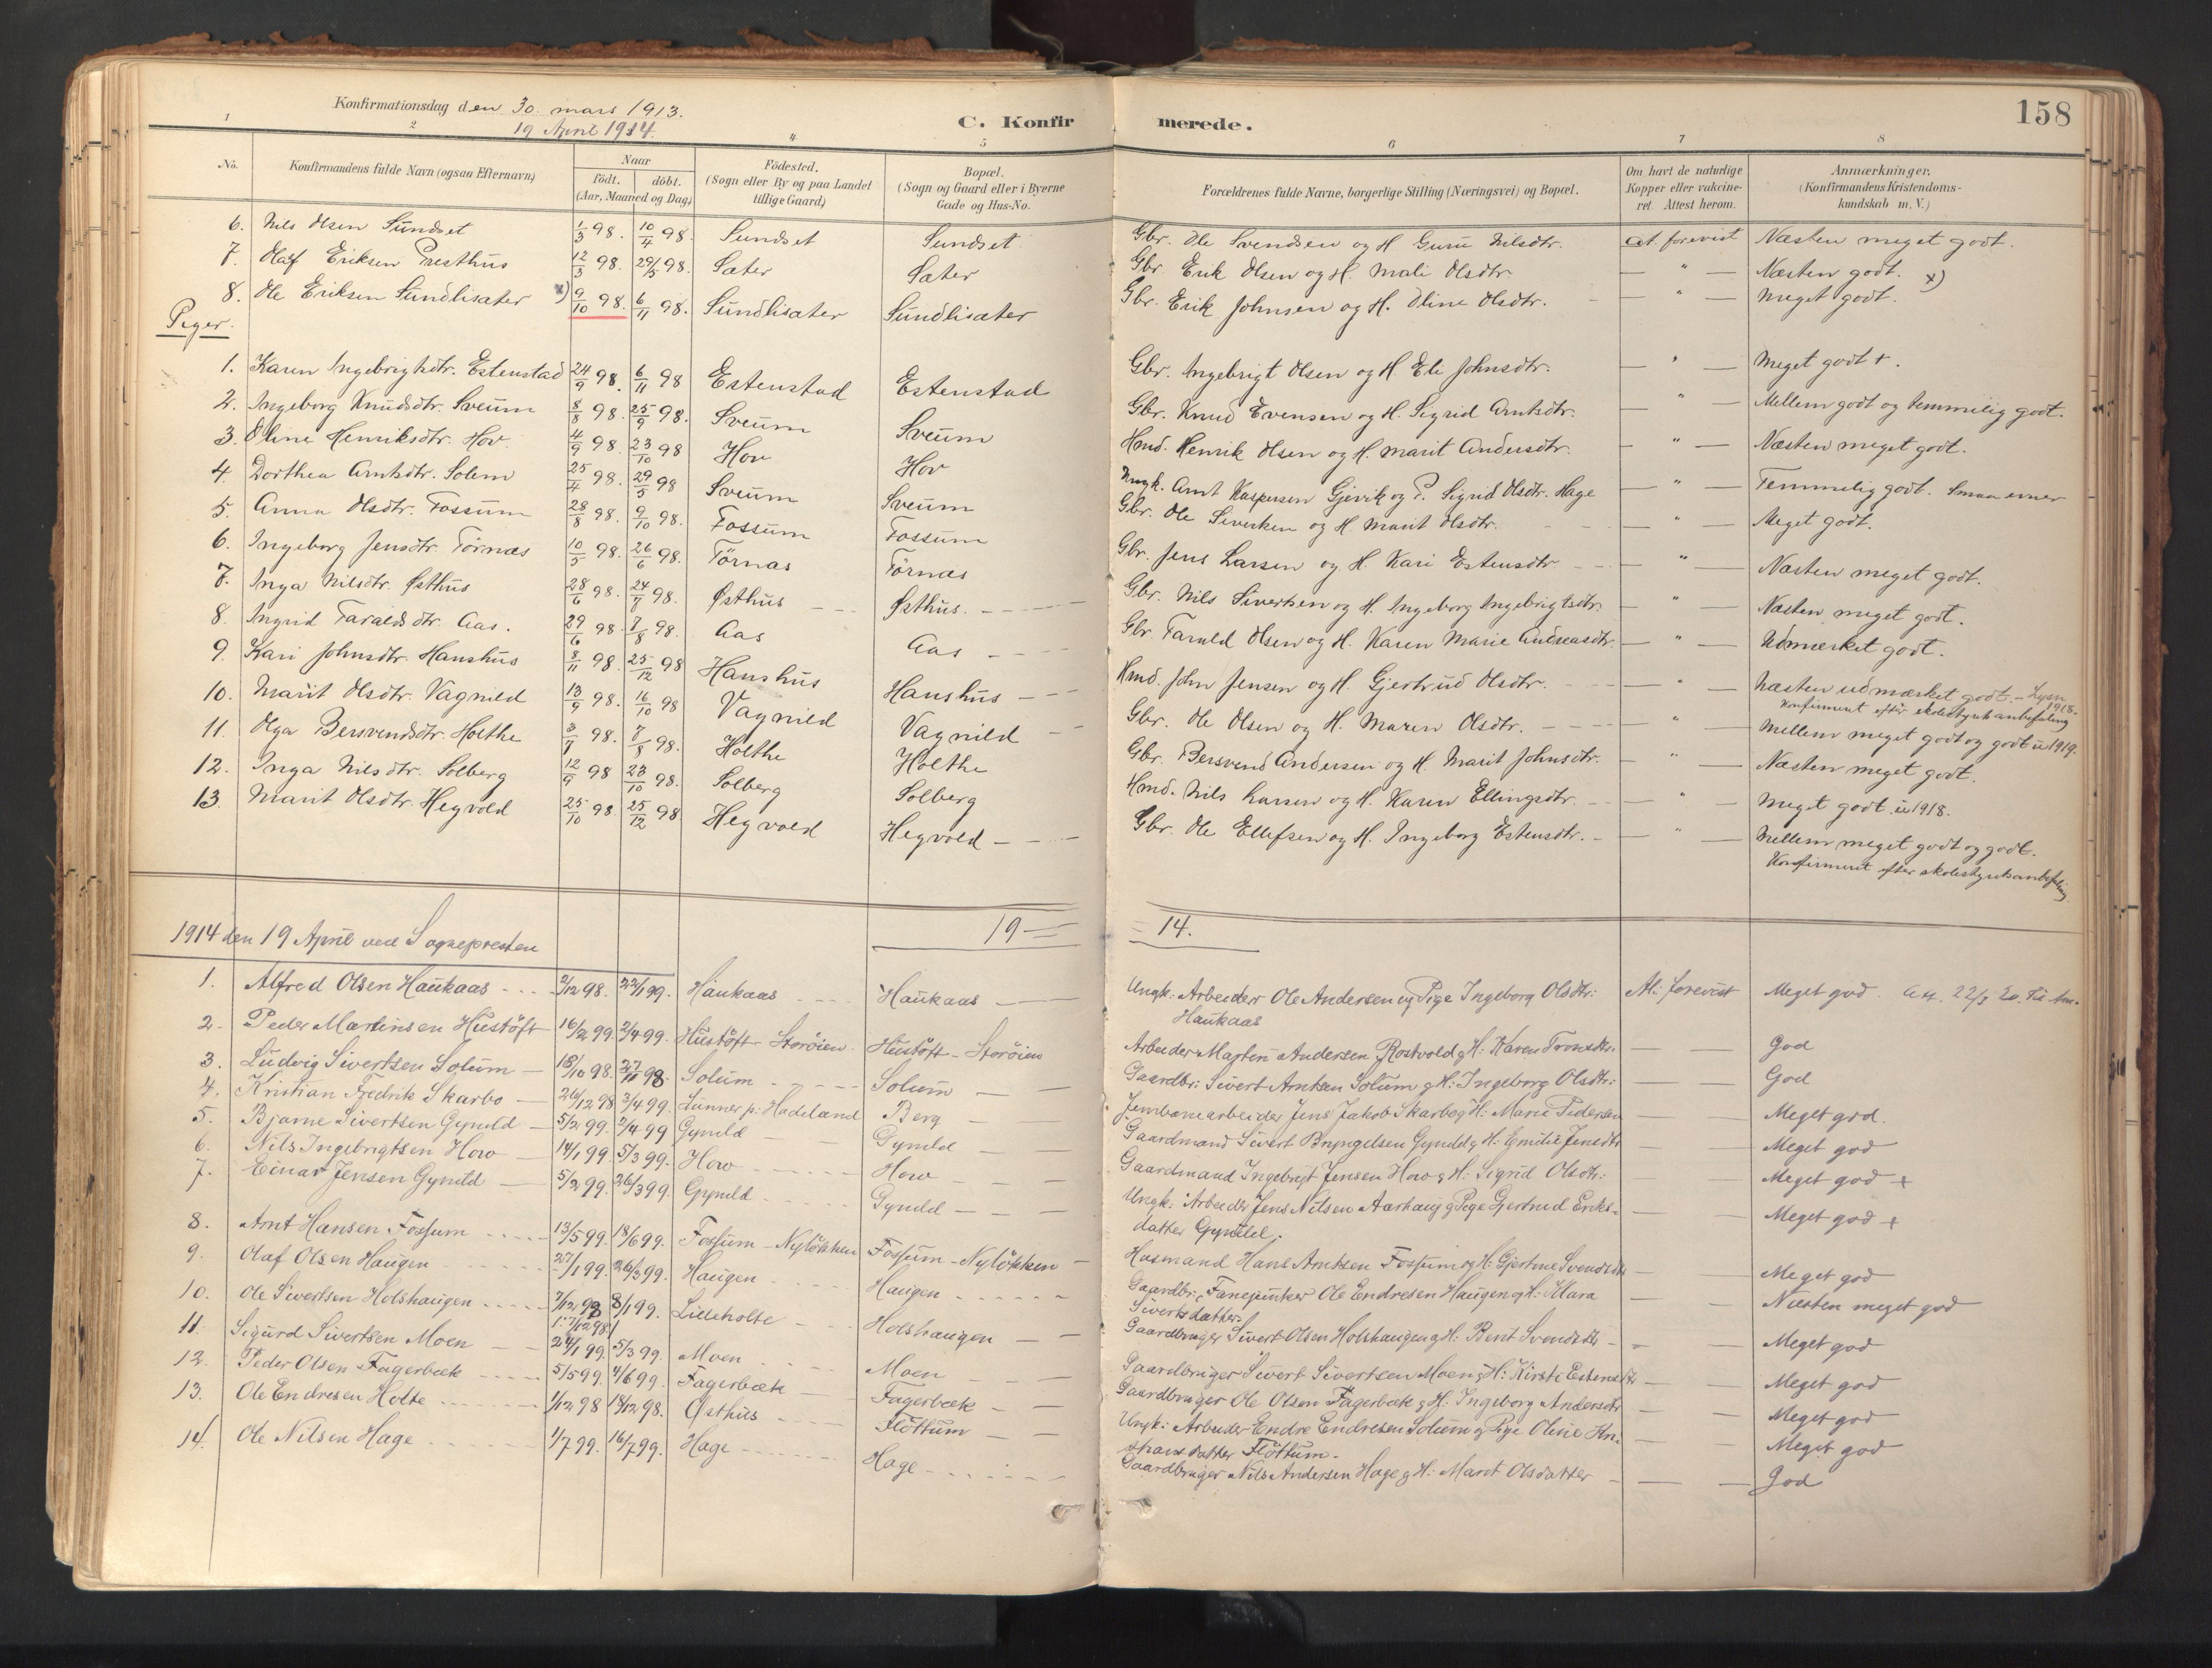 Konfirmationsdag den 30. mars 1913.
19 April 1914.
C. Konfirmerede.
158
1 2 4 5 6 7 8
No. Konfirmandens fulde Navn (ogsaa Efternavn) Naar födt. döbt. (Aar, Maaned og Dag) Födested. (Sogn eller By og paa Landet tillige Gaard) Bopæl. (Sogn og Gaard eller i Byerne Gade og Hus-No. Forældrenes fulde Navne, borgerlige Stilling (Næringsvei) og Bopæl. Om havt de naturlige Kopper eller vakcineret. Attest herom. Anmærkninger. (Konfirmandens Kristendomskundskab m. V.)
6. Nils Olsen Sundset 1/3 98. 10/4 98. Sundset Sundset. Gbr. Ole Svendsen og H. Guru Nilsdtr. at. forevist Næsten meget godt.
7. Olaf Eriksen Presthus 12/3 98. 29/5 98. Sæter Sæter Gbr. Erik Olsen og H. Mali Olsdtr. — " — Næsten godt. x)
8. Ole Eriksen Sundlisæter x) 9/10 98. 6/11 98. Sundlisæter Sundlisæter Gbr. Erik Johnsen og H. Oline Olsdtr. — " — Meget godt.
Piger.
1. Karen Ingebrigtsdtr. Estenstad 24/9 98. 6/11 98 Estenstad Estenstad Gbr. Ingebrigt Olsen og H. Eli Johnsdtr. — " — Meget godt +.
2. Ingeborg Knudsdtr. Sveum 8/8 98. 25/9 98. Sveum Sveum Gbr. Knud Evensen og H. Sigrid Arntsdtr. — " — Mellem godt og temmelig godt.
3. Oline Henriksdtr. Hov 4/9 98. 23/10 98 Hov Hov Hmd. Henrik Olsen og H. Marit Andersdtr. — " — Næsten meget godt.
4. Dorthea Arntsdtr. Solem 25/4 98. 29/5 98 Sveum Sveum Ungk. Arnt Kaspersen Gjevik og P. Sigrid Olsdtr. Hage — " — Temmelig godt. Smaa evner
5. Anna Olsdtr. Fossum 28/8 98. 9/10 98. Fossum Fossum Gbr. Ole Sivertsen og H. Marit Olsdtr. — " — Meget godt.
6. Ingeborg Jensdtr. Törnæs 10/5 98. 26/6 98. Törnæs Törnæs Gbr. Jens Larsen og H. Kari Estensdtr — " — Næsten meget godt.
7. Inga Nilsdtr. Østhus 28/6 98. 24/7 98. Østhus Østhus. Gbr. Nils Sivertsen og H. Ingeborg Ingebrigtsdtr. — " — Næsten meget godt.
8. Ingrid Taraldsdtr. Aas. 29/6 98. 7/8 98. Aas Aas Gbr. Tarald Olsen og H. Karen Marie Andreasdtr. — " — Udmærket godt.
9. Kari Johnsdtr. Hanshus 8/11 98. 25/12 98 Hanshus Hanshus Hmd. John Jensen og H. Gjertrud Olsdtr. — " — Næsten udmærket godt. – Lysn. 1918.
Konfirmeret efter skolestyrets anbefaling
10. Marit Olsdtr. Vagnild 13/9 98. 16/10 98 Vagnild Vagnild Gbr. Ole Olsen og H. Maren Olsdtr. — " — Mellem meget godt og godt u 1919.
11. Olga Bersvendsdtr. Holthe 3/7 98. 7/8 98. Holthe Holthe Gbr. Bersvend Andersen og H. Marit Johnsdtr. — " — Næsten meget godt.
12. Inga Nilsdtr. Solberg 12/9 98 23/10 98. Solberg Solberg Hmd. Nils Larsen og H. Karen Ellingsdtr. — " — Meget godt. u 1918.
13. Marit Olsdtr. Hegvold 25/10 98. 25/12 98 Hegvold Hegvold Gbr. Ole Ellefsen og H. Ingeborg Estensdtr. — " — Mellem meget godt og godt.
Konfirmeret efter skolestyrets anbefaling
1914 den 19 April ved Sognepresten 19 — = 14.
1. Alfred Olsen Haukaas 2/12 98. 22/1 99. Haukaas Haukaas Ungk: Arbeider Ole Andersen og Pige Ingeborg Olsdtr: Haukaas At: forevist Meget god. Att. 22/3 20.
2. Peder Martinsen Hustöft 16/2 99. 2/4 99. Hustöft Storöien. Hustöft – Storöien Arbeider Martin Andersen Rostvold g H: Karen Tronsdtr. — — God
3. Ludvig Sivertsen Solum 18/10 98. 27/11 98. Solum Solum Gaardbr: Sivert Arntsen Solum g H: Ingeborg Olsdtr: — — God
4. Kristian Fredrik Skarbo 26/12 98 3/4 99. Lunner p: Hadeland Berg Jernbanearbeider Jens Jakob Skarbo g H: Marie Pedersen — — Meget god.
5. Bjarne Sivertsen Gynild 5/2 99. 2/4 99 Gynild Gynild Gaardmand Sivert Brynjelsen Gynild g H: Emilie Jensdtr — — Meget god
6. Nils Ingebrigtsen How 14/1 99. 5/3 99. How How Gaardmand Ingebrigt Jensen How g H: Sigrid Olsdtr: — — Meget god +
7. Einar Jensen Gynild 5/2 99. 26/3 99. Gynild Gynild Ungk: Arbeider Jens Nilsen Aarhaug g Pige Gjertrud Eriksdatter Gynild. — — Meget god +
8. Arnt Hansen Fossum 13/5 99. 18/6 99. Fossum – Nylökken Fossum – Nylökken Husmand Hans Arntsen Fossum og H: Gjertine Svendsdtr — — Meget god
9. Olaf Olsen Haugen 27/1 99. 26/3 99. Haugen Haugen Gaardbr: Fanejunker Ole Endresen Haugen og H: Klara Sivertsdatter. — — Næsten meget god
10. Ole Sivertsen Holshaugen 7/12 98 8/1 99. Lilleholte Holshaugen Gaardbruger Sivert Olsen Holshaugen g H: Berit Svendsdtr — — Meget god
11. Sigurd Sivertsen Moen 24/1 99. 5/3 99. Moen Moen Gaardbruger Sivert Sivertsen Moen g H: Kirsti Estensdtr — — Meget god
12. Peder Olsen Fagerbæk 5/5 99. 4/6 99. Fagerbæk Fagerbæk Gaardbruger Ole Olsen Fagerbæk g H: Ingeborg Andersdtr — — Meget god
13. Ole Endresen Holte 1/12 98 18/12 98. Østhus Flöttum Ungk: Arbeider Endre Endresen Solum g Pige Oline Flöttum. — — Meget god
14. Ole Nilsen Hage 1/7 99. 16/7 99. Hage Hage Gaardbruger Nils Andersen Hage g H: Marit Olsdatter — — God